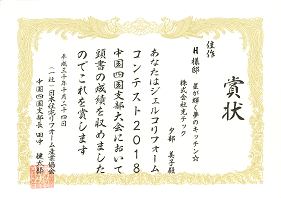 賞状
佳作
H様邸 星が輝く夢のキッチン☆
株式会社光テック
夕部 美子殿
あなたはジェルコリフォーム
コンテスト2018
中国四国支部大会において
頭書の成績を収めました
のでこれを賞します
平成三十年十月二十四日
(一社)日本住宅リフォーム産業協会
中国四国支部長 田中 健太郎